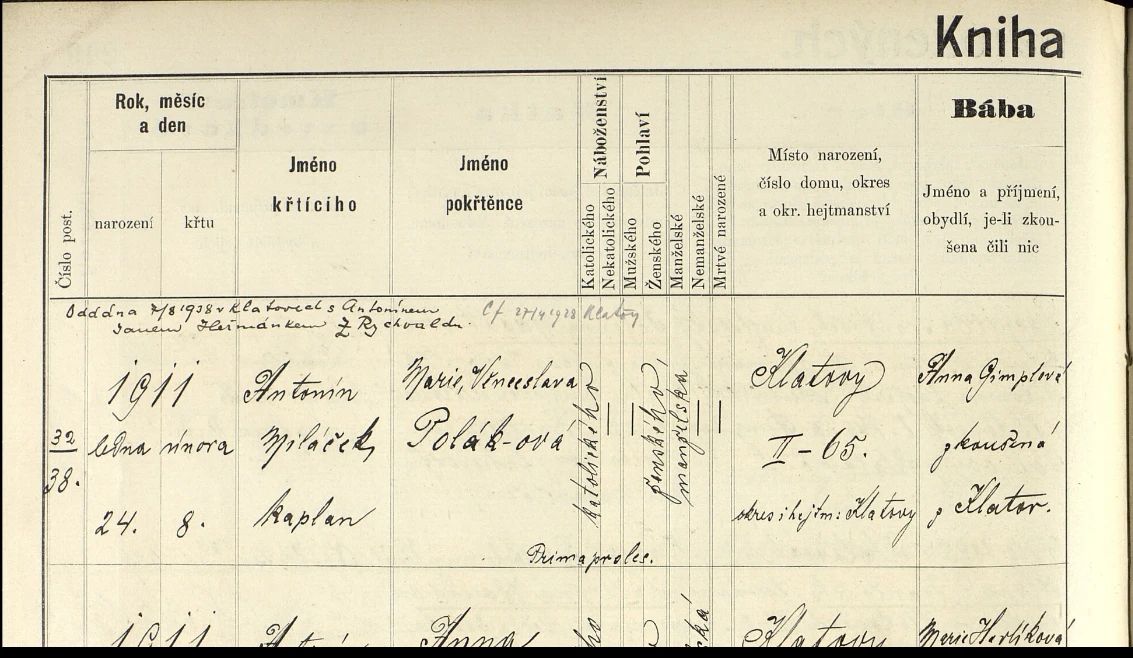 Kniha
Rok, měsíc
a den
narození
křtu
Číslo post.
Jméno
křtícího
Jméno
pokřtěnce
Náboženství
Katolického
Nekatolického
Pohlaví
Mužského
Ženského
Manželské
Nemanželské
Mrtvé narozené
Místo narození,
číslo domu, okres
a okr. hejtmanství
Bába
Jméno a příjmení,
obydlí, je-li zkou-
šena čili nic
Oddána 7/8 1938 v Klatovech s Antonínem
Janem Heřmánkem z Rychvaldu.
Cf. 27/4 1928 Klatovy
32
38.
1911
ledna února
24. 8.
Antonín
Miláček,
kaplan
Marie, Věnceslava
Polák-ová
Prima proles.
katolického
ženského
manželská,
Klatovy
II - 65.
okres i hejtm: Klatovy
Anna Gimplová
zkoušená
z Klatov.
1911
Anna
Klatovy
Marie Havlíková